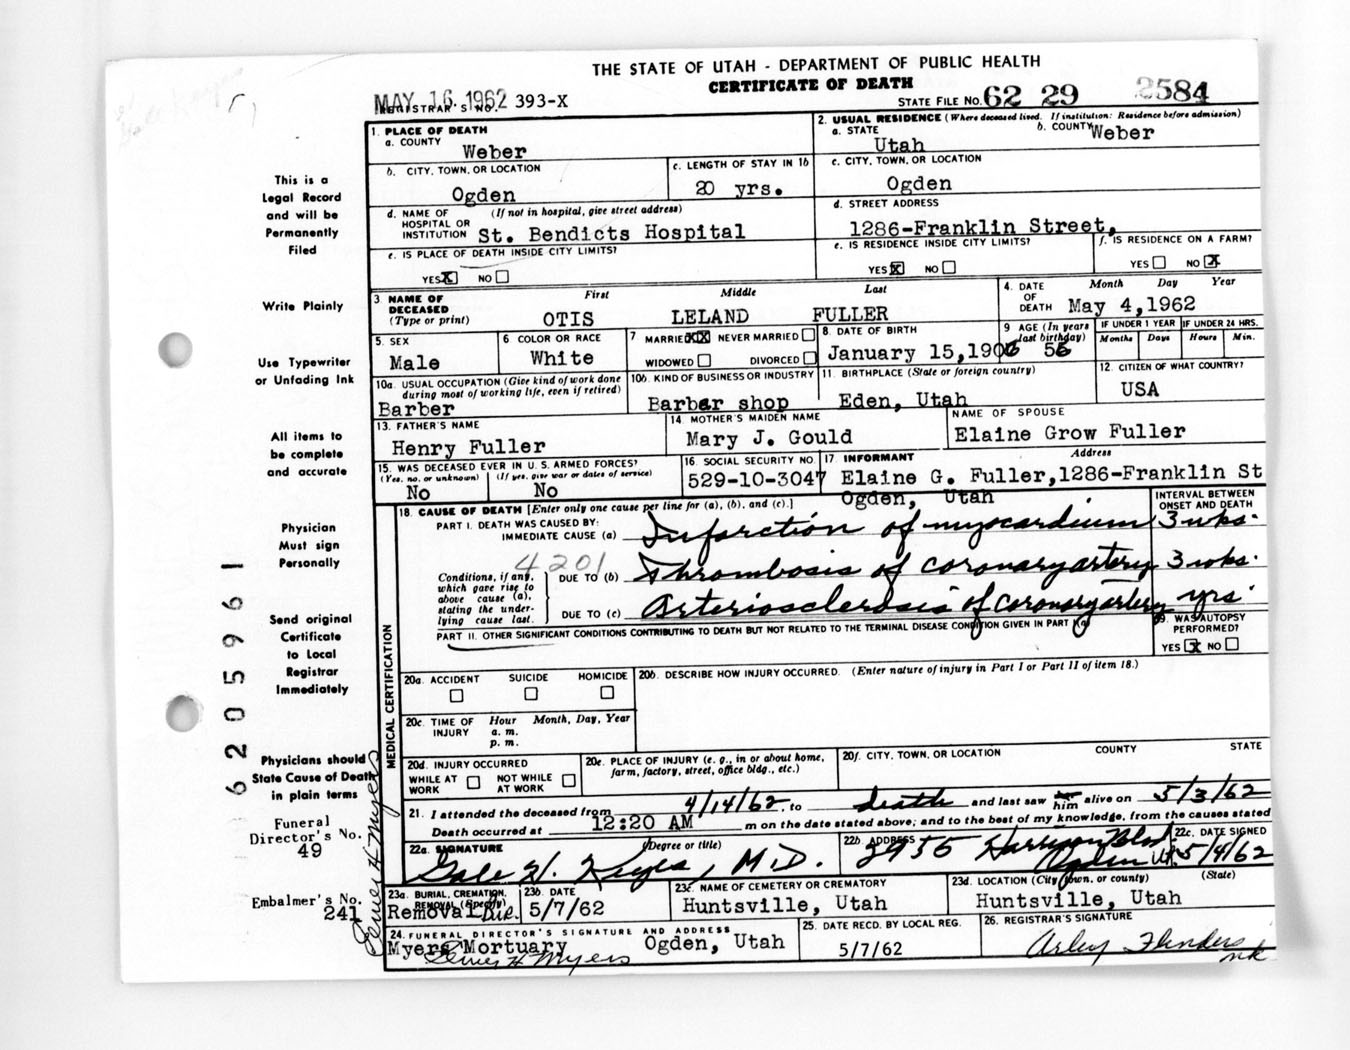 THE STATE OF UTAH - DEPARTMENT OF PUBLIC HEALTH
CERTIFICATE OF DEATH
MAY 16 1962 393-X
REGISTRAR'S NO.
STATE FILE NO. 62 29 2584
1. PLACE OF DEATH
a. COUNTY Weber
2. USUAL RESIDENCE (Where deceased lived. If institution: Residence before admission)
a. STATE Utah b. COUNTY Weber
b. CITY, TOWN, OR LOCATION Ogden
c. LENGTH OF STAY IN 1b 20 yrs.
c. CITY, TOWN, OR LOCATION Ogden
d. NAME OF HOSPITAL OR INSTITUTION (If not in hospital, give street address) St. Bendicts Hospital
d. STREET ADDRESS 1286-Franklin Street,
e. IS PLACE OF DEATH INSIDE CITY LIMITS?
YES X NO
e. IS RESIDENCE INSIDE CITY LIMITS?
YES X NO
f. IS RESIDENCE ON A FARM?
YES NO X
3. NAME OF DECEASED (Type or print) First Middle Last
OTIS LELAND FULLER
4. DATE OF DEATH Month Day Year
May 4,1962
5. SEX Male
6 COLOR OR RACE White
7 MARRIED XX NEVER MARRIED
WIDOWED DIVORCED
8. DATE OF BIRTH January 15,1906
9 AGE (In years last birthday) 56
IF UNDER 1 YEAR Months Days
IF UNDER 24 HRS. Hours Min.
10a. USUAL OCCUPATION (Give kind of work done during most of working life, even if retired)
Barber
10b. KIND OF BUSINESS OR INDUSTRY
Barber shop
11. BIRTHPLACE (State or foreign country)
Eden, Utah
12. CITIZEN OF WHAT COUNTRY?
USA
13. FATHER'S NAME
Henry Fuller
14. MOTHER'S MAIDEN NAME
Mary J. Gould
NAME OF SPOUSE
Elaine Grow Fuller
15. WAS DECEASED EVER IN U. S. ARMED FORCES?
(Yes, no, or unknown) (If yes, give war or dates of service)
No No
16. SOCIAL SECURITY NO.
529-10-3047
17 INFORMANT Address
Elaine G. Fuller,1286-Franklin St
Ogden, Utah
MEDICAL CERTIFICATION
18. CAUSE OF DEATH [Enter only one cause per line for (a), (b), and (c).]
INTERVAL BETWEEN ONSET AND DEATH
PART I. DEATH WAS CAUSED BY:
IMMEDIATE CAUSE (a) Infarction of myocardium 3 wks.
4201
Conditions, if any, which gave rise to above cause (a), stating the underlying cause last.
DUE TO (b) Thrombosis of coronary artery 3 wks.
DUE TO (c) Arteriosclerosis of coronary artery yrs.
PART II. OTHER SIGNIFICANT CONDITIONS CONTRIBUTING TO DEATH BUT NOT RELATED TO THE TERMINAL DISEASE CONDITION GIVEN IN PART I(a)
19. WAS AUTOPSY PERFORMED?
YES X NO
20a. ACCIDENT SUICIDE HOMICIDE
20b. DESCRIBE HOW INJURY OCCURRED. (Enter nature of injury in Part I or Part II of item 18.)
20c. TIME OF INJURY Hour Month, Day, Year
a. m.
p. m.
20d. INJURY OCCURRED
WHILE AT WORK NOT WHILE AT WORK
20e. PLACE OF INJURY (e. g., in or about home, farm, factory, street, office bldg., etc.)
20f. CITY, TOWN, OR LOCATION COUNTY STATE
21. I attended the deceased from 4/14/62, to death and last saw him alive on 5/3/62
Death occurred at 12:20 AM m on the date stated above; and to the best of my knowledge, from the causes stated
22a. SIGNATURE (Degree or title)
M.D.
22b. ADDRESS
Harrison Blvd
Ogden Ut
22c. DATE SIGNED
5/4/62
23a. BURIAL, CREMATION, REMOVAL (Specify)
Removal Bur.
23b. DATE
5/7/62
23c. NAME OF CEMETERY OR CREMATORY
Huntsville, Utah
23d. LOCATION (City, town, or county) (State)
Huntsville, Utah
24. FUNERAL DIRECTOR'S SIGNATURE AND ADDRESS
Myers Mortuary Ogden, Utah
25. DATE RECD. BY LOCAL REG.
5/7/62
26. REGISTRAR'S SIGNATURE
This is a
Legal Record
and will be
Permanently
Filed
Write Plainly
Use Typewriter
or Unfading Ink
All items to
be complete
and accurate
Physician
Must sign
Personally
Send original
Certificate
to Local
Registrar
Immediately
Physicians should
State Cause of Death
in plain terms
Funeral
Director's No.
49
Embalmer's No.
241
6205961